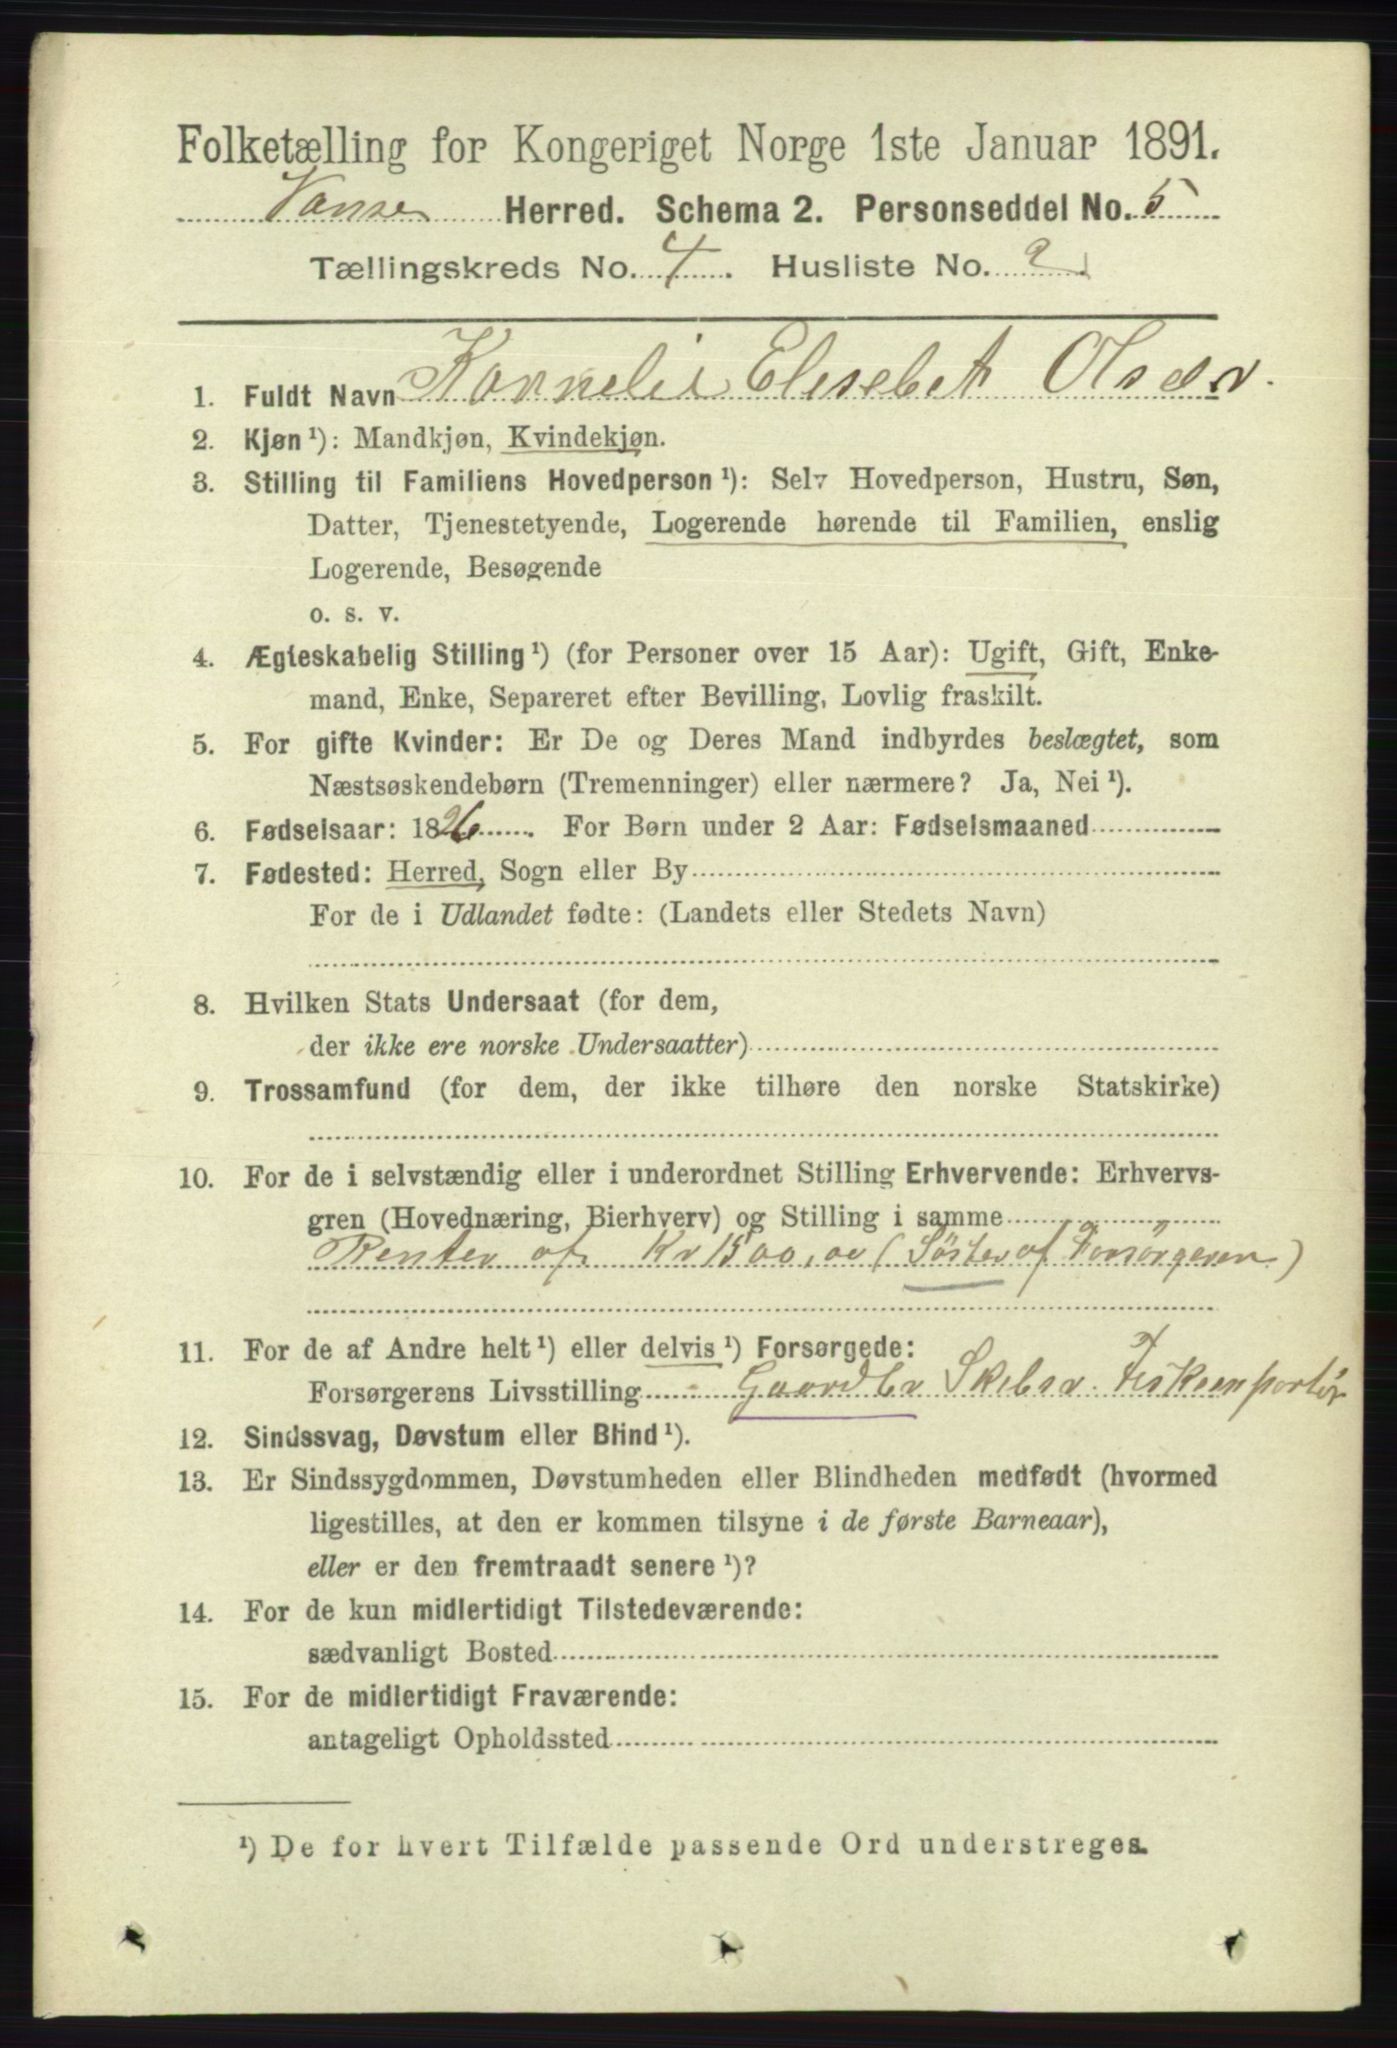 Folketælling for Kongeriget Norge 1ste Januar 1891.
Vanse Herred. Schema 2. Personseddel No. 5
Tællingskreds No. 4. Husliste No. 2
1. Fuldt Navn Kornelia Elisebet Olsen.
2. Kjøn ¹): Mandkjøn, Kvindekjøn.
3. Stilling til Familiens Hovedperson ¹): Selv Hovedperson, Hustru, Søn,
Datter, Tjenestetyende, Logerende hørende til Familien, enslig
Logerende, Besøgende
o. s. v.
4. Ægteskabelig Stilling ¹) (for Personer over 15 Aar): Ugift, Gift, Enke-
mand, Enke, Separeret efter Bevilling, Lovlig fraskilt.
5. For gifte Kvinder: Er De og Deres Mand indbyrdes beslægtet, som
Næstsøskendebørn (Tremenninger) eller nærmere? Ja, Nei ¹).
6. Fødselsaar: 1826. For Børn under 2 Aar: Fødselsmaaned
7. Fødested: Herred, Sogn eller By
For de i Udlandet fødte: (Landets eller Stedets Navn)
8. Hvilken Stats Undersaat (for dem,
der ikke ere norske Undersaatter)
9. Trossamfund (for dem, der ikke tilhøre den norske Statskirke)
10. For de i selvstændig eller i underordnet Stilling Erhvervende: Erhvervs-
gren (Hovednæring, Bierhverv) og Stilling i samme
Renter af Kr 1500,00 (Söster af Forsörgeren)
11. For de af Andre helt ¹) eller delvis ¹) Forsørgede:
Forsørgerens Livsstilling Gaardbr Skibsr. Fiskeexportör
12. Sindssvag, Døvstum eller Blind ¹).
13. Er Sindssygdommen, Døvstumheden eller Blindheden medfødt (hvormed
ligestilles, at den er kommen tilsyne i de første Barneaar),
eller er den fremtraadt senere ¹)?
14. For de kun midlertidigt Tilstedeværende:
sædvanligt Bosted
15. For de midlertidigt Fraværende:
antageligt Opholdssted
¹) De for hvert Tilfælde passende Ord understreges.